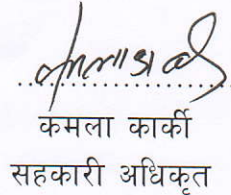 कमला कार्की
सहकारी अधिकृत